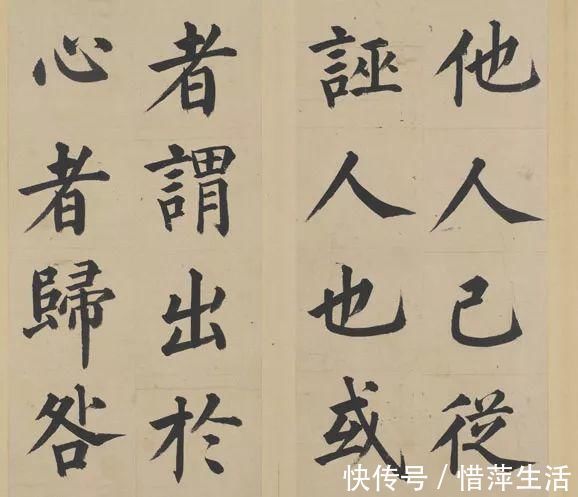 他人己從
誣人也或
者謂出於
心者歸咎
快传号/惜萍生活